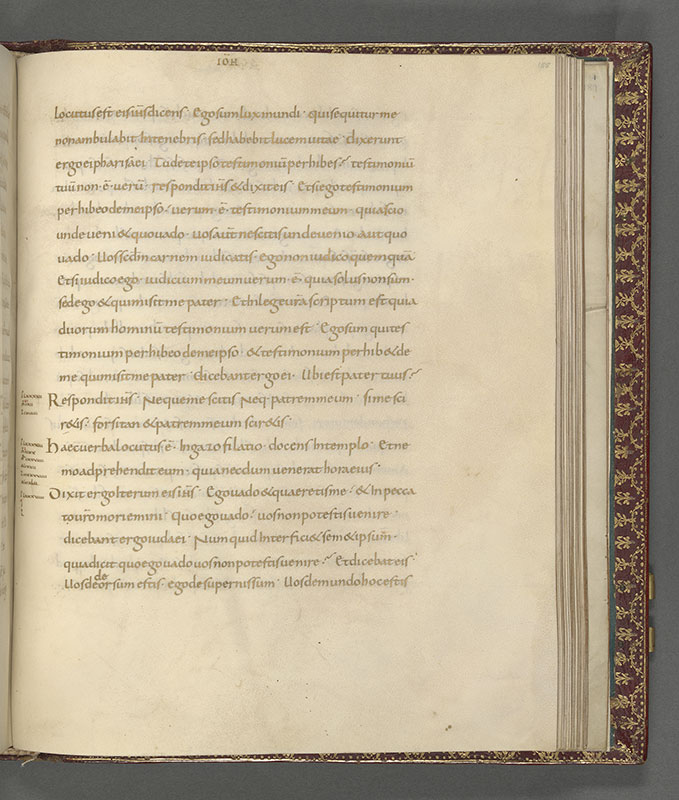 IOH
locutus est eis iħs dicens · Ego sum lux mundi · qui sequitur me
non ambulabit in tenebris · sed habebit lucem uitae · dixerunt
ergo ei pharisaei · Tu de te ipso testimoniū perhibes · testimoniū
tuū non · ē · uerū · respondit iħs & dixit eis · Et si ego testimonium
perhibeo de me ipso · uerum · ē · testimonium meum · quia scio
unde ueni & quo uado · uos aūt nescitis unde uenio · aut quo
uado · Uos scdm carnem iudicatis · ego non iudico quemquā
Et si iudico ego · iudicium meum uerum · ē · quia solus non sum ·
sed ego & qui misit me pater · Et in lege ura scriptum est quia
duorum hominū testimonium uerum est · Ego sum qui tes
timonium perhibeo de me ipso · & testimonium perhib& de
me qui misit me pater · dicebant ergo ei · Ubi est pater tuus ·
Respondit iħs · Neque me scitis neq; patrem meum · si me sci
r&is · forsitan & patrem meum scir&is ·
Haec uerba locutus · ē · in gazofilatio · docens in templo · Et ne
mo adprehendit eum · quia necdum uenerat hora eius ·
Dixit ergo iterum eis iħs · Ego uado & quaeretis me · & in pecca
to uro moriemini · quo ego uado · uos non potestis uenire ·
dicebant ergo iudaei · Numquid interfici& sem& ipsum ·
quia dicit quo ego uado uos non potestis uenire · Et dicebat eis
Uos de deorsum estis · ego de supernis sum · Uos de mundo hoc estis